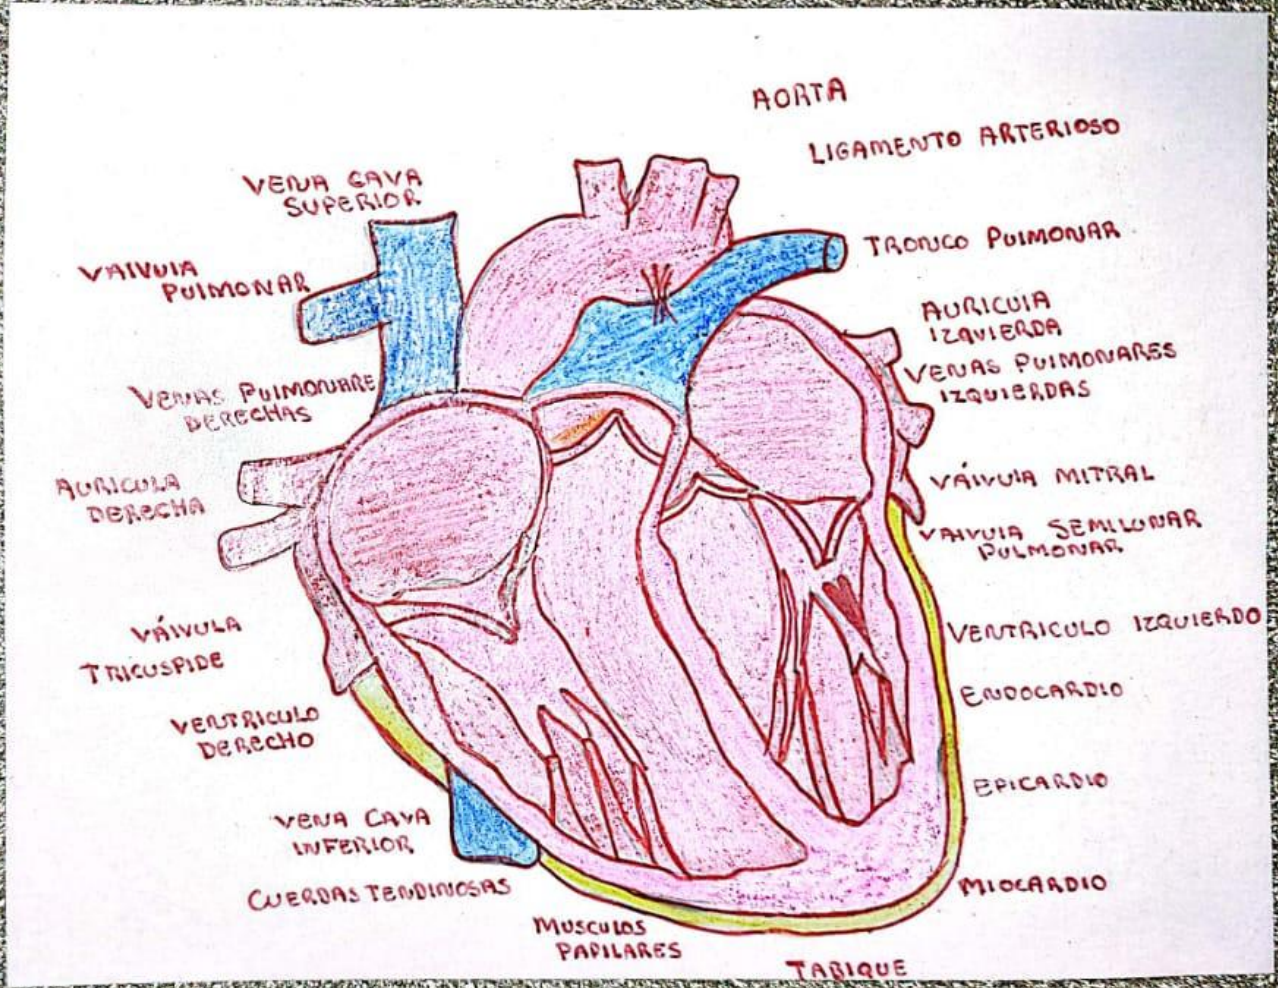 AORTA
LIGAMENTO ARTERIOSO
VENA CAVA
SUPERIOR
TRONCO PUIMONAR
VAIVUIA
PUIMONAR
AURICUIA
IZQUIERDA
VENAS PUIMONARES
IZQUIERDAS
VENAS PUIMONARE
DERECHAS
AURICULA
DERECHA
VÁIVUIA MITRAL
VAIVUIA SEMILUNAR
PULMONAR
VÁIVULA
TRICUSPIDE
VENTRICULO IZQUIERDO
ENDOCARDIO
VENTRICULO
DERECHO
EPICARDIO
VENA CAVA
INFERIOR
CUERDAS TENDINOSAS
MIOCARDIO
MUSCULOS
PAPILARES
TABIQUE